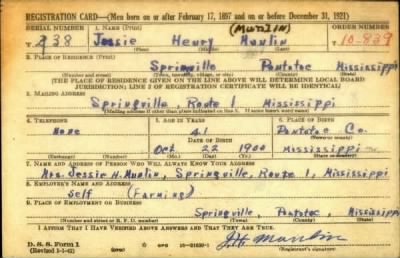 REGISTRATION CARD—(Men born on or after February 17, 1897 and on or before December 31, 1921)
SERIAL NUMBER 1. NAME (Print) (Munlin) ORDER NUMBER
T 238 Jessie Henry Munlin 10-829
(First) (Middle) (Last)
2. PLACE OF RESIDENCE (Print)
Springville Pontotoc Mississippi
(Number and street) (Town, township, village, or city) (County) (State)
[THE PLACE OF RESIDENCE GIVEN ON THE LINE ABOVE WILL DETERMINE LOCAL BOARD
JURISDICTION; LINE 2 OF REGISTRATION CERTIFICATE WILL BE IDENTICAL]
3. MAILING ADDRESS
Springville Route 1 Mississippi
[Mailing address if other than place indicated on line 2. If same insert word same]
4. TELEPHONE 5. AGE IN YEARS 6. PLACE OF BIRTH
None 41 Pontotoc Co.
DATE OF BIRTH (Town or county)
Oct. 22 1900 Mississippi
(Exchange) (Number) (Mo.) (Day) (Yr.) (State or country)
7. NAME AND ADDRESS OF PERSON WHO WILL ALWAYS KNOW YOUR ADDRESS
Mrs. Jessie H. Munlin, Springville, Route 1, Mississippi
8. EMPLOYER'S NAME AND ADDRESS
Self (Farming)
9. PLACE OF EMPLOYMENT OR BUSINESS
Springville, Pontotoc, Mississippi
(Number and street or R. F. D. number) (Town) (County) (State)
I AFFIRM THAT I HAVE VERIFIED ABOVE ANSWERS AND THAT THEY ARE TRUE.
D. S. S. Form 1
(Revised 1-1-42) GPO 16-21630-1 (Registrant's signature)